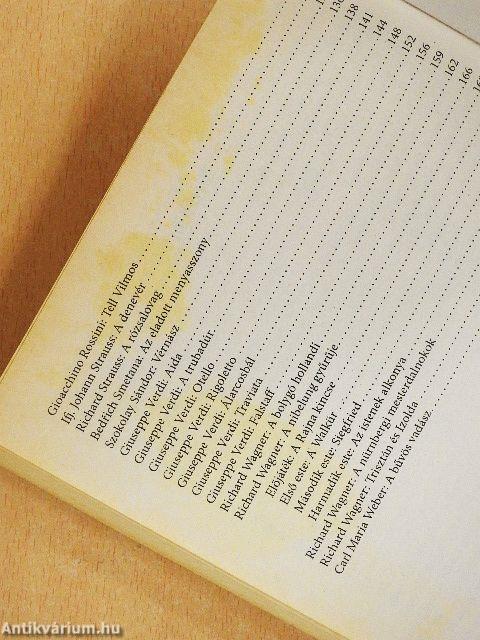 Gioacchino Rossini: Tell Vilmos
Ifj. Johann Strauss: A denevér
Richard Strauss: A rózsalovag
Bedřich Smetana: Az eladott menyasszony
Szokolay Sándor: Vérnász
Giuseppe Verdi: Aida
Giuseppe Verdi: A trubadúr
Giuseppe Verdi: Otello
Giuseppe Verdi: Rigoletto
Giuseppe Verdi: Álarcosbál
Giuseppe Verdi: Traviata
Giuseppe Verdi: Falstaff
Richard Wagner: A bolygó hollandi
Richard Wagner: A nibelung gyűrűje
Előjáték: A Rajna kincse
Első este: A Walkür
Második este: Siegfried
Harmadik este: Az istenek alkonya
Richard Wagner: A nürnbergi mesterdalnokok
Richard Wagner: Trisztán és Izolda
Carl Maria Weber: A bűvös vadász
138
141
144
148
152
156
159
162
166
Antikvárium.hu